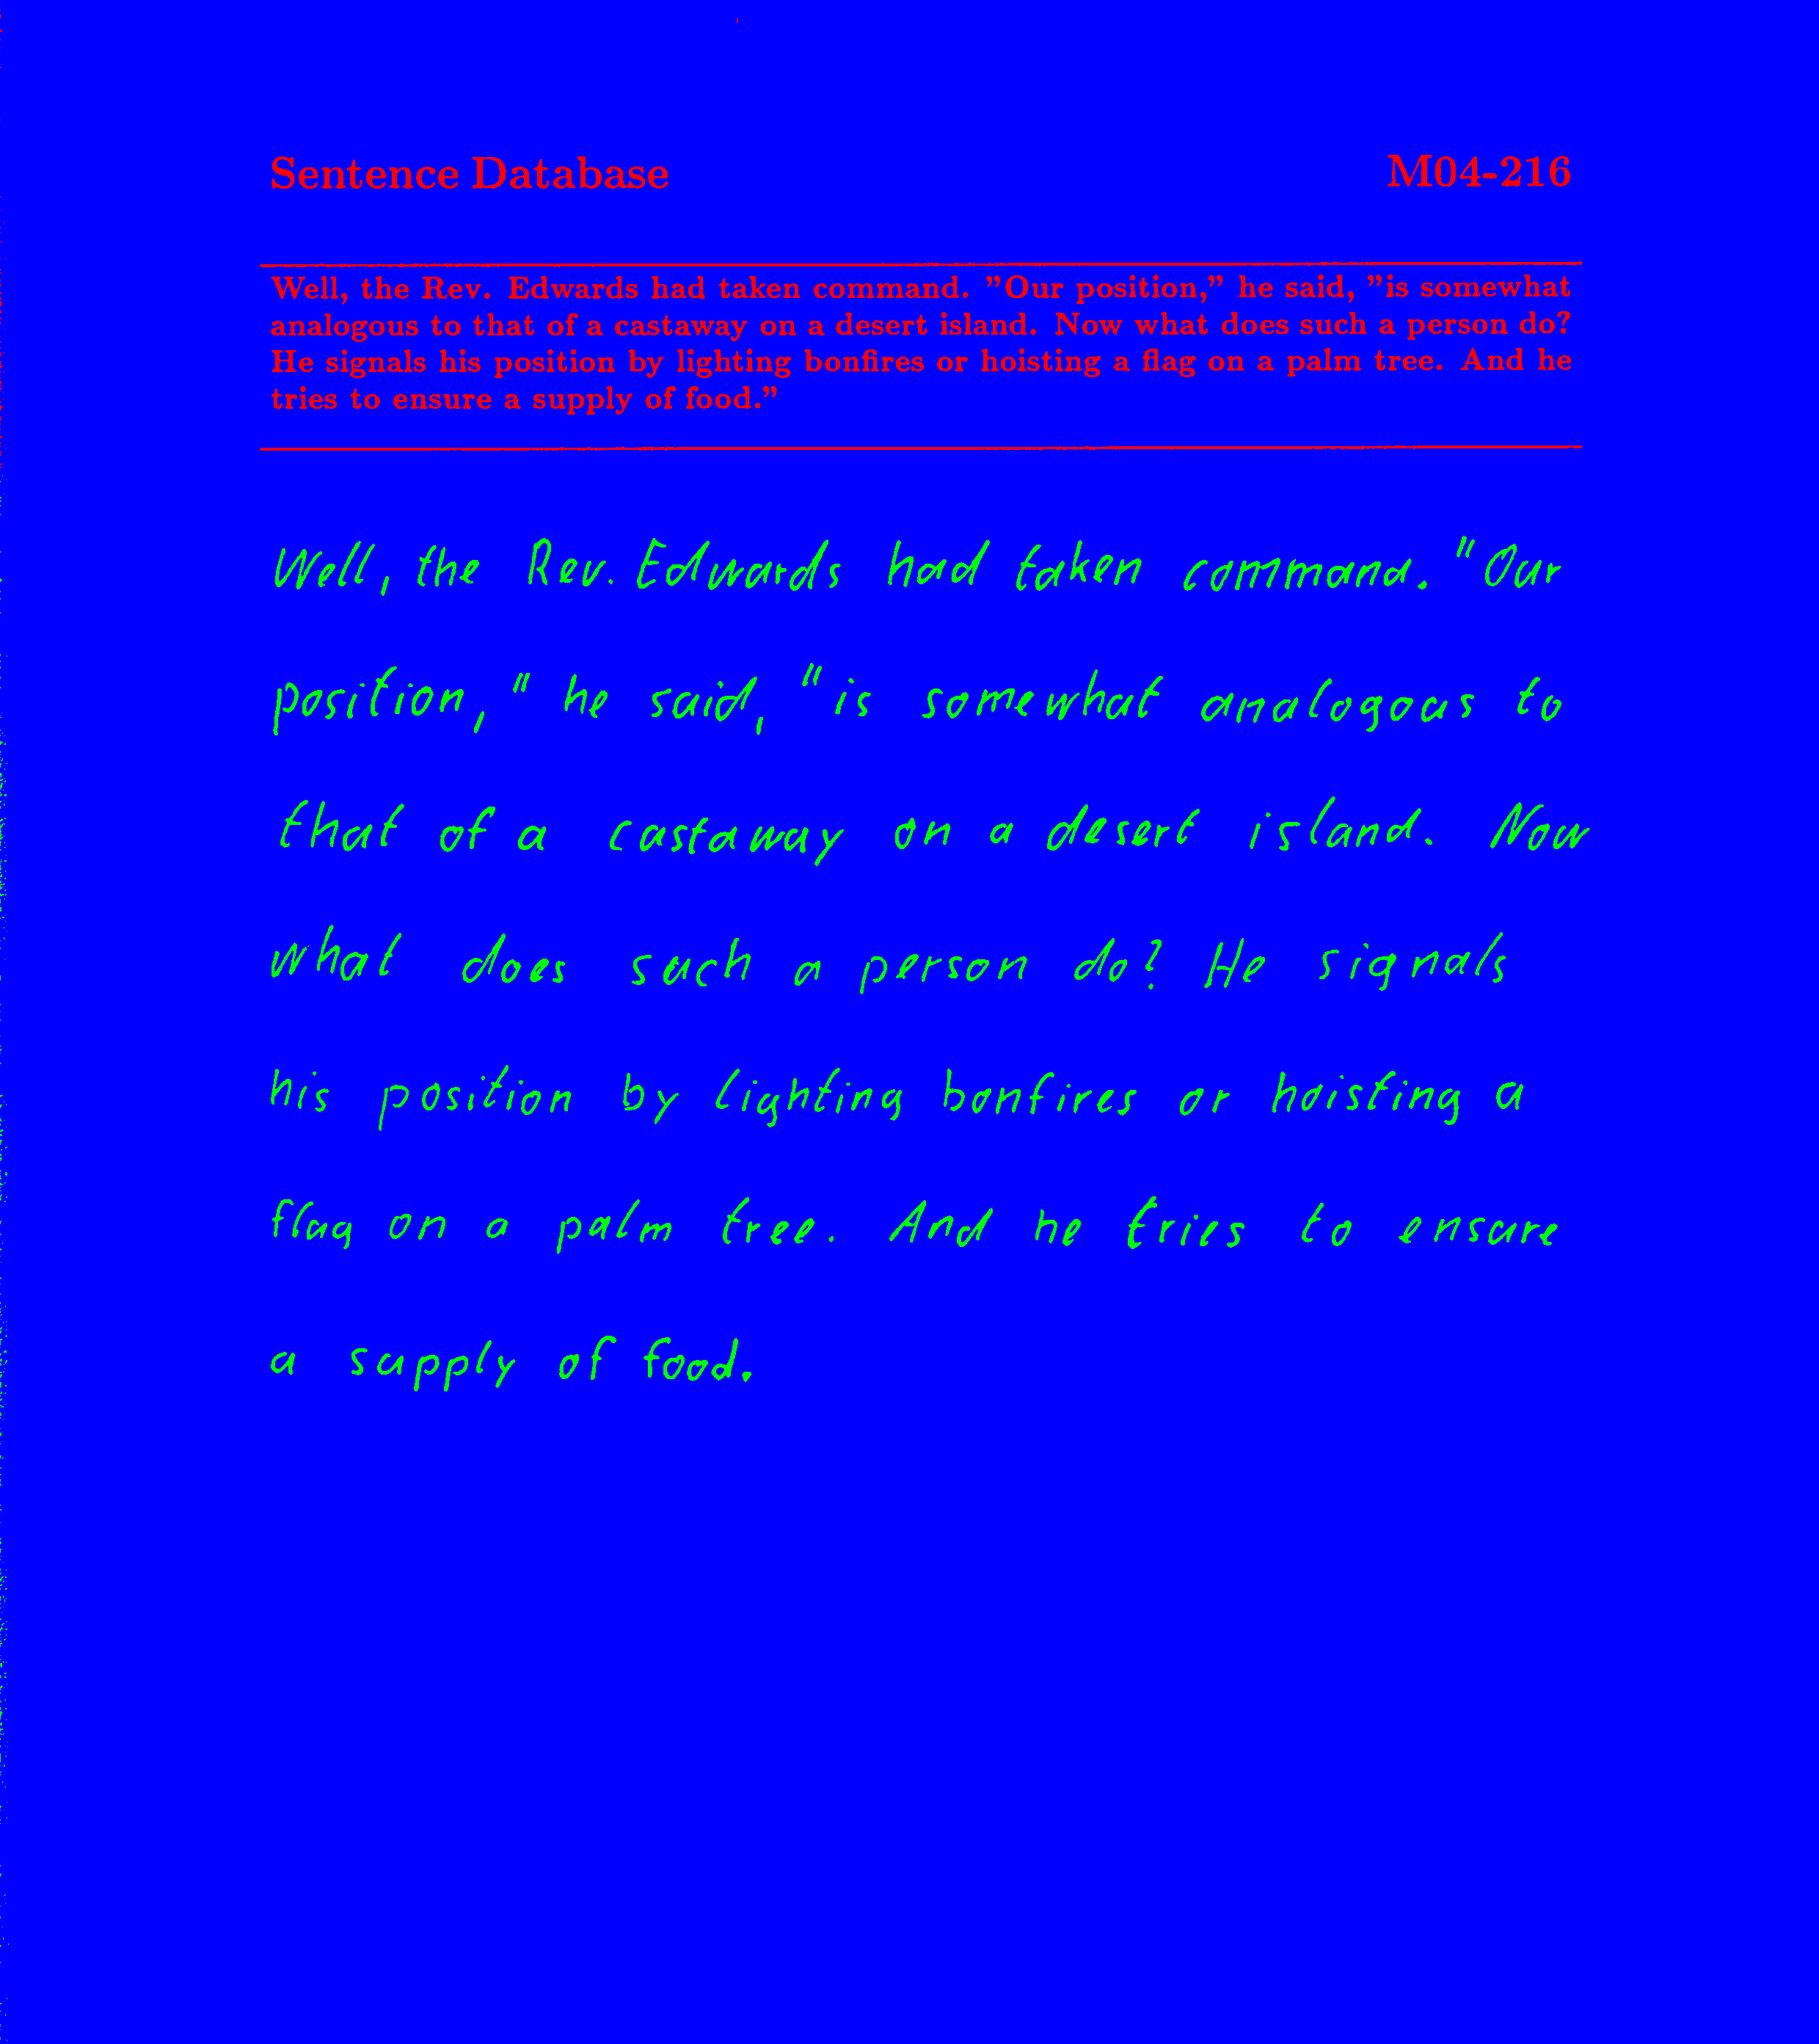 Sentence Database M04-216
Well, the Rev. Edwards had taken command. "Our position," he said, "is somewhat
analogous to that of a castaway on a desert island. Now what does such a person do?
He signals his position by lighting bonfires or hoisting a flag on a palm tree. And he
tries to ensure a supply of food."
Well, the Rev. Edwards had taken command. "Our
position," he said, "is somewhat analogous to
that of a castaway on a desert island. Now
what does such a person do? He signals
his position by lighting bonfires or hoisting a
flag on a palm tree. And he tries to ensure
a supply of food.